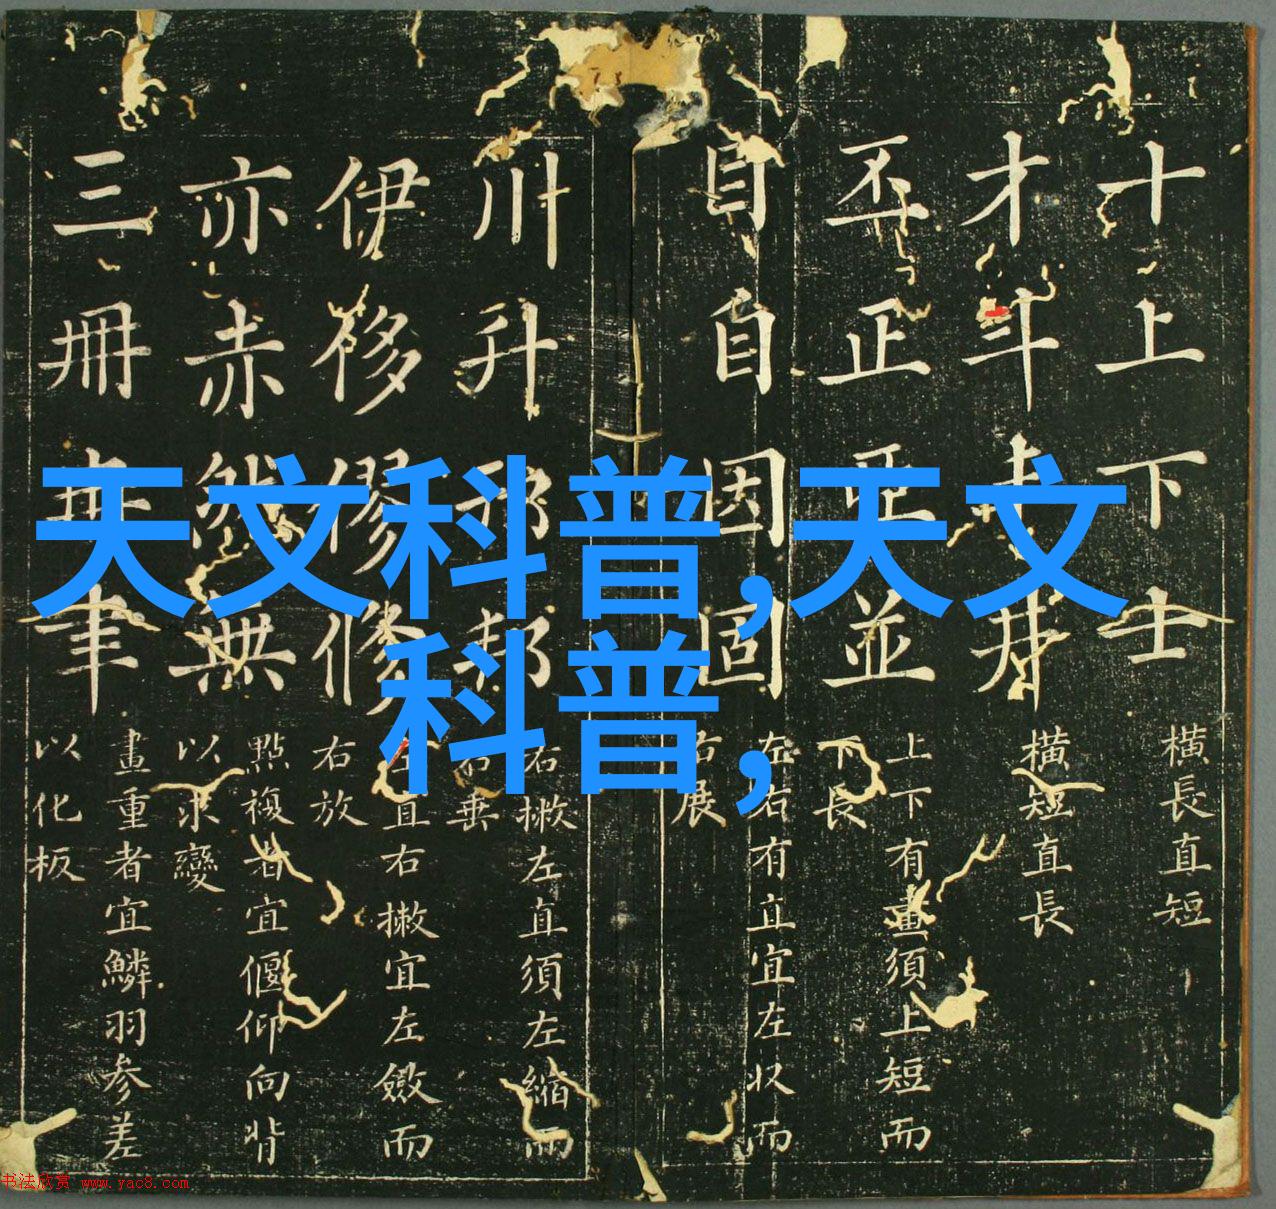 天文科普,天文
科普,
十上下士
横長直短
才斗
井
橫短直長
丕正亞並
上下有畫須上短而
下長
自自因固
左右有直宜左收而
右展
川升邪邦
右撇左直須左縮而
右垂
伊侈修
左直右撇宜左斂而
右放
亦赤然無
點複者宜偃仰向背
以求變
三冊
畫重者宜鱗羽参差
以化板
书法欣赏 www.yac8.com